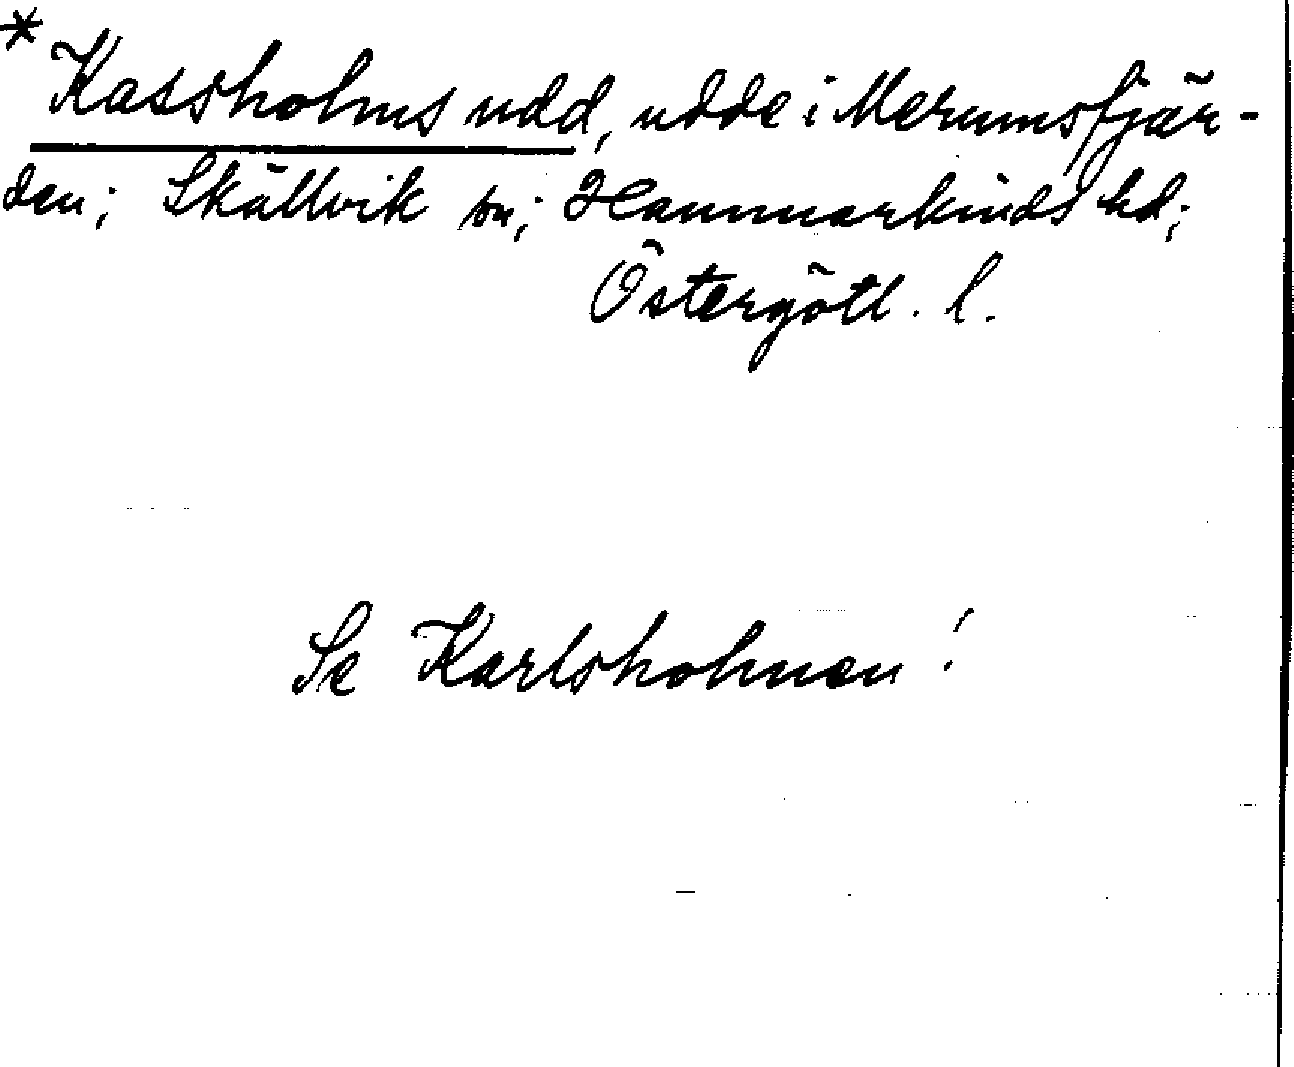 * Kassholms udd, udde i Merumsfjär-
den; Skällvik sn; Hammarkinds hd;
Östergötl. l.
Se Karlsholmen!